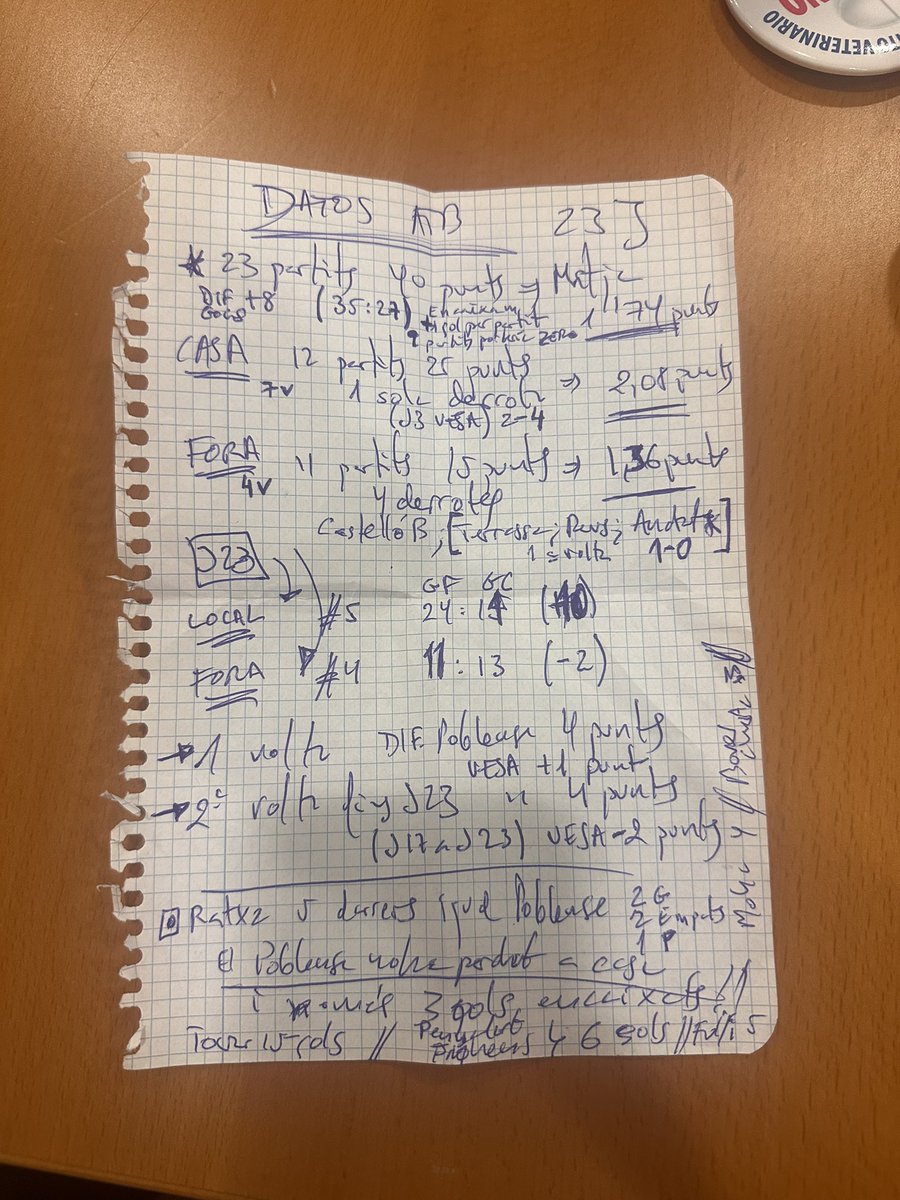 TO VETERINARIO
DATOS ATB 23 J
* 23 partits 40 punts ⇒ Mitja
DIF +8 (35:27) 1'74 punts
GOLS
+ 1 gol per partit
ZERO
CASA 12 partits 25 punts ⇒ 2,08 punts
7V 1 sola derrota
(J3 UESA) 2-4
FORA 11 partits 15 punts ⇒ 1,36 punts
4V 4 derrotes
Castelló B, [Terrassa; Reus; Andratx]
1ª volta 1-0
J23
GF GC
LOCAL #5 24:14 (+10)
FORA #4 11:13 (-2)
→ 1 volta DIF. Poblense 4 punts
UESA +1 punt
→ 2ª volta fins J23 " 4 punts
(J17 a J23) UESA -2 punts
Ratxa 5 darrers igual Poblense 2G
2 Empats
1 P
El Poblense no ha perdut a casa
i només 3 gols encaixats //
6 gols // 5